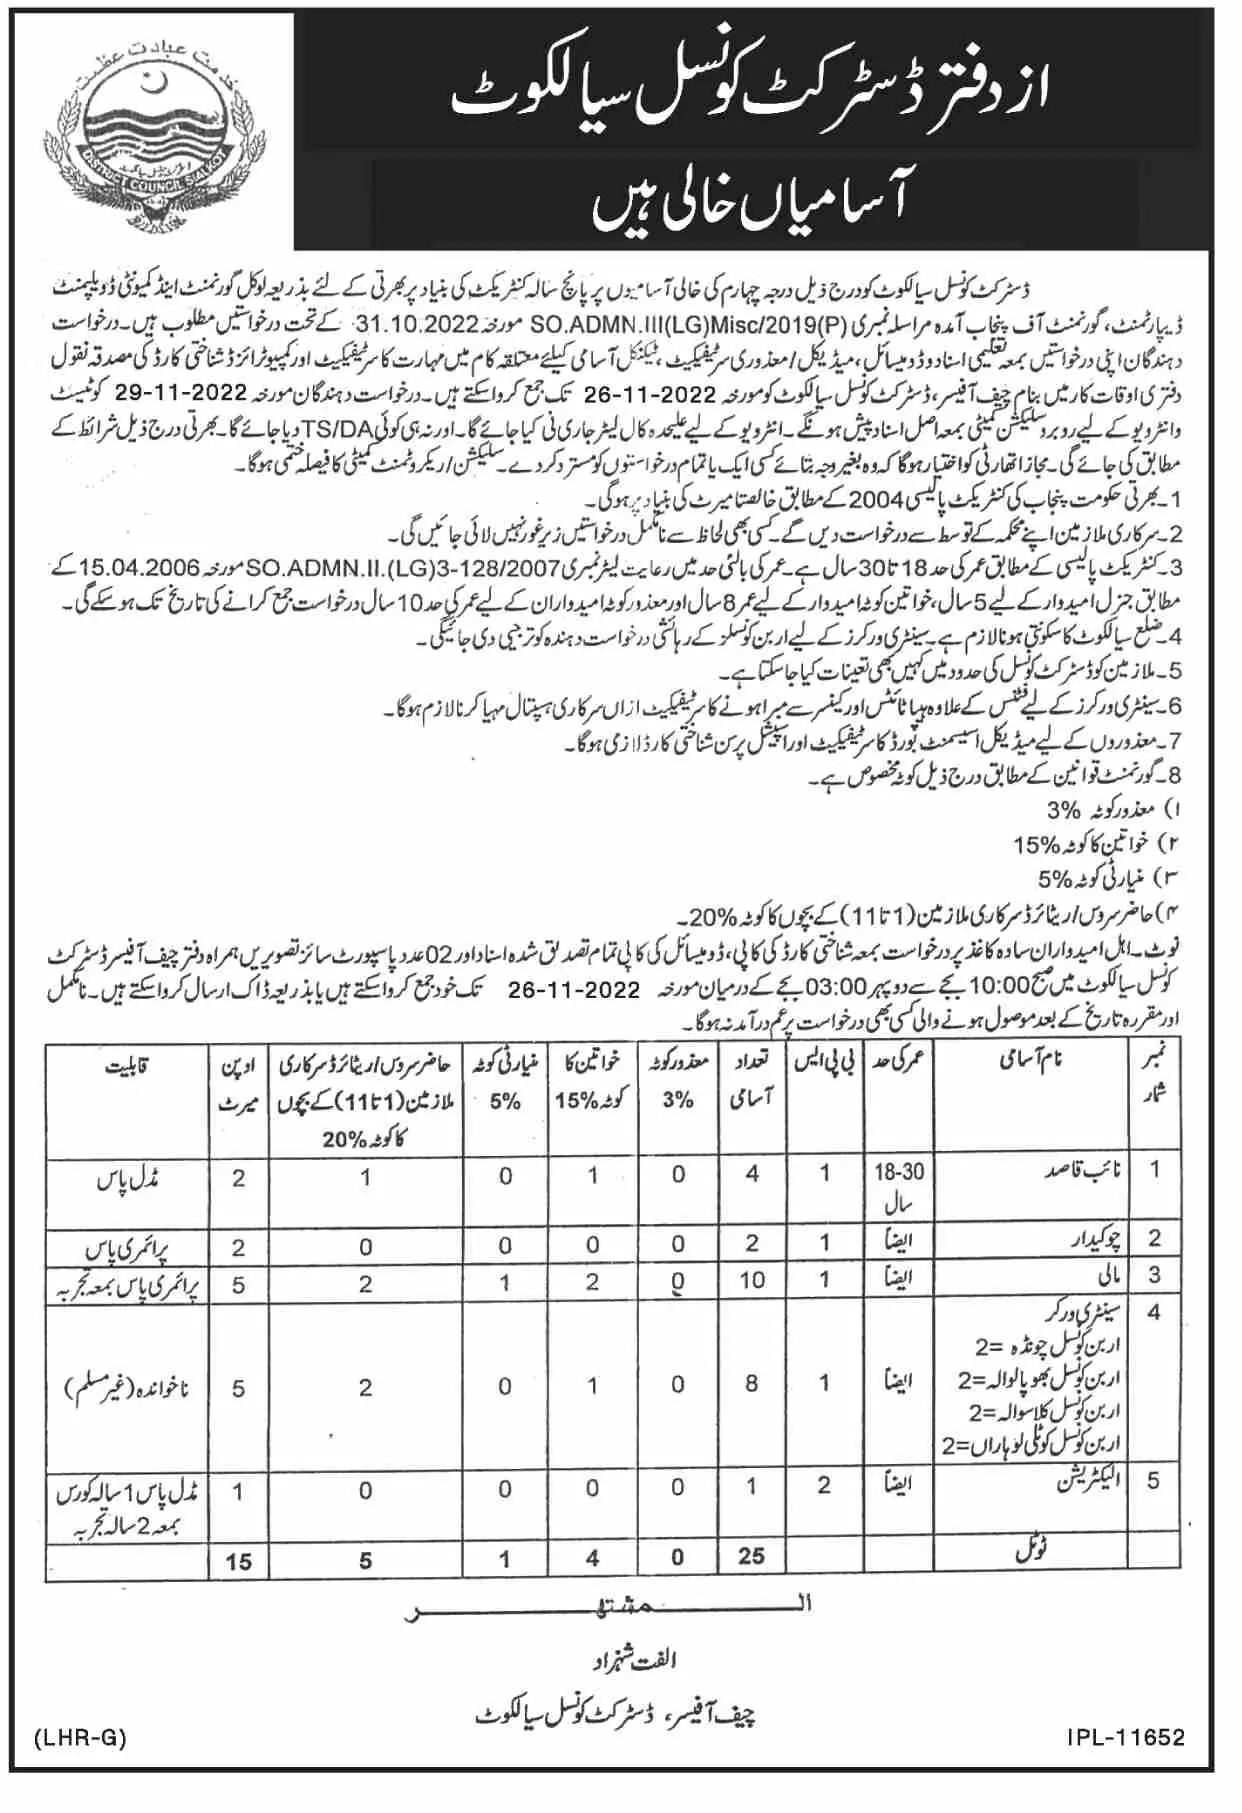 خدمت عبادت عظمت
DISTRICT COUNCIL SIALKOT
از دفتر ڈسٹرکٹ کونسل سیالکوٹ
آسامیاں خالی ہیں
ڈسٹرکٹ کونسل سیالکوٹ کو درج ذیل درجہ چہارم کی خالی آسامیوں پر پانچ سالہ کنٹریکٹ کی بنیاد پر بھرتی کے لئے بذریعہ لوکل گورنمنٹ اینڈ کمیونٹی ڈویلپمنٹ
ڈیپارٹمنٹ، گورنمنٹ آف پنجاب آمدہ مراسلہ نمبری SO.ADMN.III(LG)Misc/2019(P) مورخہ 31.10.2022 کے تحت درخواستیں مطلوب ہیں۔ درخواست
دہندگان اپنی درخواستیں بمعہ تعلیمی اسناد و ڈومیسائل، میڈیکل/معذوری سرٹیفکیٹ، ٹیکنکل آسامی کیلئے متعلقہ کام میں مہارت کا سرٹیفکیٹ اور کمپیوٹرائزڈ شناختی کارڈ کی مصدقہ نقول
دفتری اوقات کار میں بنام چیف آفیسر، ڈسٹرکٹ کونسل سیالکوٹ کو مورخہ 26-11-2022 تک جمع کروا سکتے ہیں۔ درخواست دہندگان مورخہ 29-11-2022 کو ٹیسٹ
وانٹرویو کے لیے روبرو سلیکشن کمیٹی بمعہ اصل اسناد پیش ہونگے۔ انٹرویو کے لیے علیحدہ کال لیٹر جاری نی کیا جائے گا۔ اور نہ ہی کوئی TS/DA دیا جائے گا۔ بھرتی درج ذیل شرائط کے
مطابق کی جائے گی۔ مجاز اتھارٹی کو اختیار ہوگا کہ وہ بغیر وجہ بتائے کسی ایک یا تمام درخواستوں کو مسترد کردے۔ سلیکشن/ریکروٹمنٹ کمیٹی کا فیصلہ حتمی ہوگا۔
1۔ بھرتی حکومت پنجاب کی کنٹریکٹ پالیسی 2004 کے مطابق خالصتا میرٹ کی بنیاد پر ہوگی۔
2۔ سرکاری ملازمین اپنے محکمہ کے توسط سے درخواست دیں گے۔ کسی بھی لحاظ سے نامکمل درخواستیں زیر غور نہیں لائی جائیں گی۔
3۔ کنٹریکٹ پالیسی کے مطابق عمر کی حد 18 تا 30 سال ہے۔ عمر کی بالائی حد میں رعایت لیٹر نمبری SO.ADMN.II.(LG)3-128/2007 مورخہ 15.04.2006 کے
مطابق جنرل امیدوار کے لیے 5 سال، خواتین کوٹہ امیدوار کے لیے عمر 8 سال اور معذور کوٹہ امیدواران کے لیے عمر کی حد 10 سال درخواست جمع کرانے کی تاریخ تک ہو سکے گی۔
4۔ ضلع سیالکوٹ کا سکونتی ہونا لازم ہے۔ سینٹری ورکرز کے لیے اربن کونسلز کے رہائشی درخواست دہندہ کو ترجیحی دی جائیگی۔
5۔ ملازمین کو ڈسٹرکٹ کونسل کی حدود میں کہیں بھی تعینات کیا جاسکتا ہے۔
6۔ سینٹری ورکرز کے لیے فٹنس کے علاوہ ہیپاٹائٹس اور کینسر سے مبرا ہونے کا سرٹیفکیٹ ازاں سرکاری ہسپتال مہیا کرنا لازم ہوگا۔
7۔ معذوروں کے لیے میڈیکل اسیسمنٹ بورڈ کا سرٹیفکیٹ اور اسپیشل پرسن شناختی کارڈ لازمی ہوگا۔
8۔ گورنمنٹ قوانین کے مطابق درج ذیل کوٹہ مخصوص ہے۔
۱) معذور کوٹہ 3%
۲) خواتین کا کوٹہ 15%
۳) منیارٹی کوٹہ 5%
۴) حاضر سروس/ریٹائرڈ سرکاری ملازمین (1 تا 11) کے بچوں کا کوٹہ 20%۔
نوٹ۔ اہل امیدواران سادہ کاغذ پر درخواست بمعہ شناختی کارڈ کی کاپی، ڈومیسائل کی کاپی تمام تصدیق شدہ اسناد اور 02 عدد پاسپورٹ سائز تصویریں ہمراہ دفتر چیف آفیسر ڈسٹرکٹ
کونسل سیالکوٹ میں صبح 10:00 بجے سے دوپہر 03:00 بجے کے درمیان مورخہ 26-11-2022 تک خود جمع کروا سکتے ہیں یا بذریعہ ڈاک ارسال کروا سکتے ہیں۔ نامکمل
اور مقررہ تاریخ کے بعد موصول ہونے والی کسی بھی درخواست پر عمل درآمد نہ ہوگا۔
نمبر شمار | نام آسامی | عمر کی حد | بی پی ایس | تعداد آسامی | معذور کوٹہ 3% | خواتین کا کوٹہ 15% | منیارٹی کوٹہ 5% | حاضر سروس/ریٹائرڈ سرکاری ملازمین (1 تا 11) کے بچوں کا کوٹہ 20% | اوپن میرٹ | قابلیت
1 | نائب قاصد | 18-30 سال | 1 | 4 | 0 | 1 | 0 | 1 | 2 | مڈل پاس
2 | چوکیدار | ایضاً | 1 | 2 | 0 | 0 | 0 | 0 | 2 | پرائمری پاس
3 | مالی | ایضاً | 1 | 10 | 0 | 2 | 1 | 2 | 5 | پرائمری پاس بمعہ تجربہ
4 | سینٹری ورکر
اربن کونسل چونڈہ =2
اربن کونسل بھوپالوالہ =2
اربن کونسل کلاسوالہ =2
اربن کونسل کوٹلی لوہاراں =2 | ایضاً | 1 | 8 | 0 | 1 | 0 | 2 | 5 | ناخواندہ (غیر مسلم)
5 | الیکٹریشن | ایضاً | 2 | 1 | 0 | 0 | 0 | 0 | 1 | مڈل پاس 1 سالہ کورس بمعہ 2 سالہ تجربہ
ٹوٹل | 25 | 0 | 4 | 1 | 5 | 15
المشتہر
الفت شہزاد
چیف آفیسر، ڈسٹرکٹ کونسل سیالکوٹ
(LHR-G)
IPL-11652